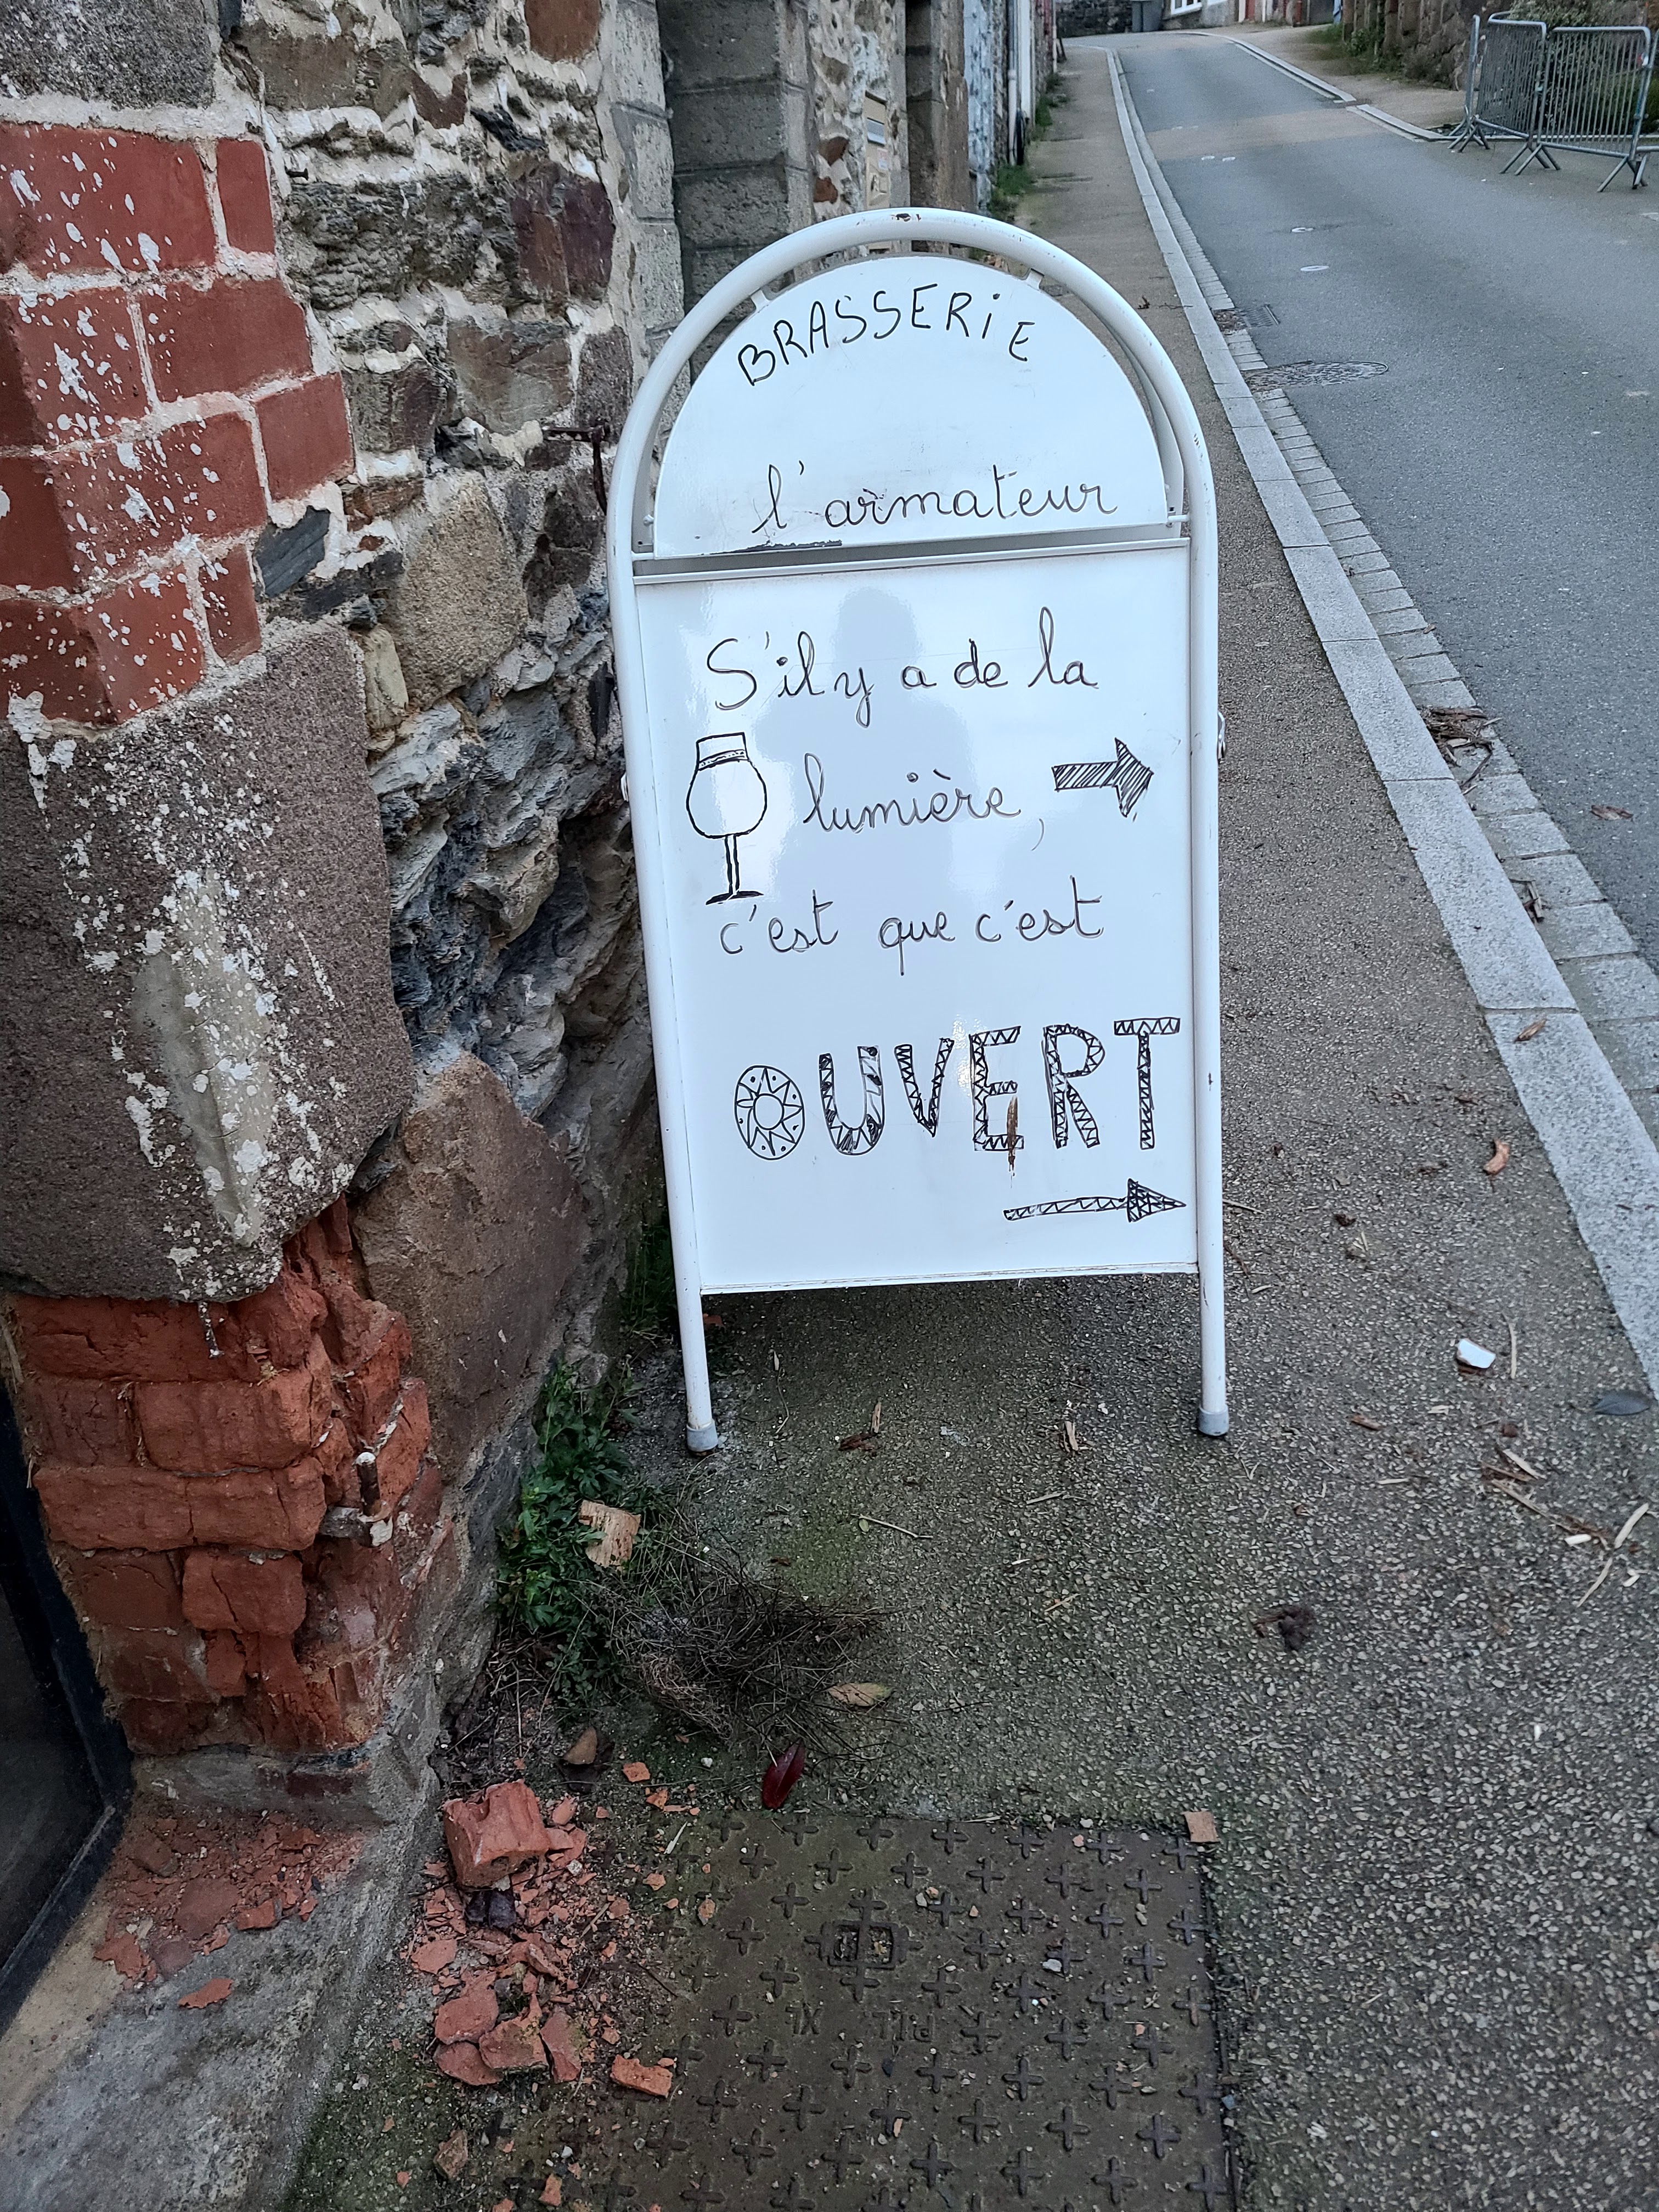 BRASSERiE
l'armateur
S'il y a de la
lumière,
c'est que c'est
OUVERT